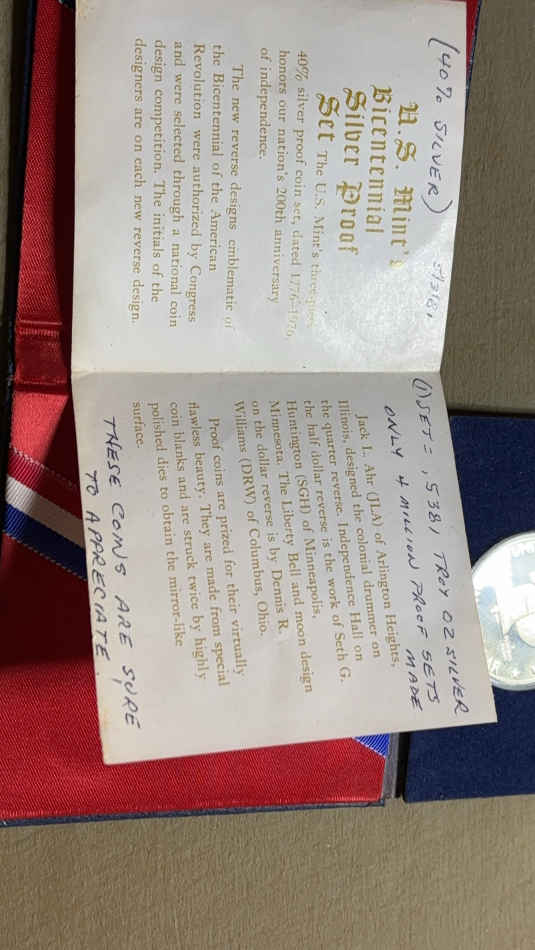 (40% SILVER)
U.S. Mint's
Bicentennial
Silver Proof
Set The U.S. Mint's three-piece
40% silver proof coin set, dated 1776-1976,
honors our nation's 200th anniversary
of independence.
The new reverse designs emblematic of
the Bicentennial of the American
Revolution were authorized by Congress
and were selected through a national coin
design competition. The initials of the
designers are on each new reverse design.
(1) SET = .5381 TROY OZ SILVER
ONLY 4 MILLION PROOF SETS
MADE
Jack L. Ahr (JLA) of Arlington Heights,
Illinois, designed the colonial drummer on
the quarter reverse. Independence Hall on
the half dollar reverse is the work of Seth G.
Huntington (SGH) of Minneapolis,
Minnesota. The Liberty Bell and moon design
on the dollar reverse is by Dennis R.
Williams (DRW) of Columbus, Ohio.
Proof coins are prized for their virtually
flawless beauty. They are made from special
coin blanks and are struck twice by highly
polished dies to obtain the mirror-like
surface.
THESE COINS ARE SURE
TO APPRECIATE.